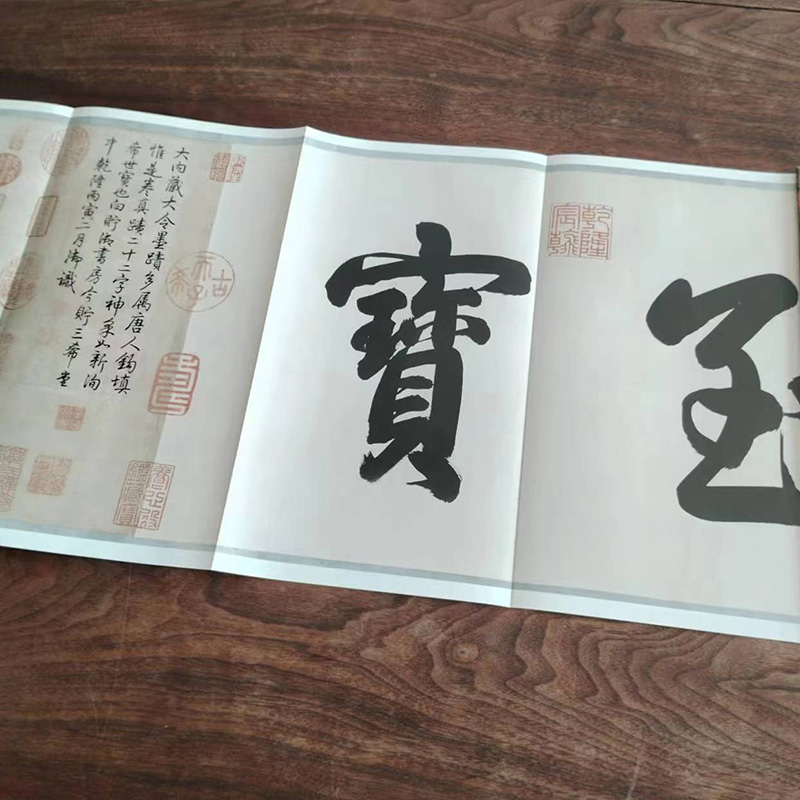 至
乾隆宸翰
寶
大内藏大令墨蹟多属唐人鈎填
惟是卷真蹟二十二字神采如新洵
希世寶也向貯御書房今貯三希堂
中乾隆丙寅二月御識
古希天子